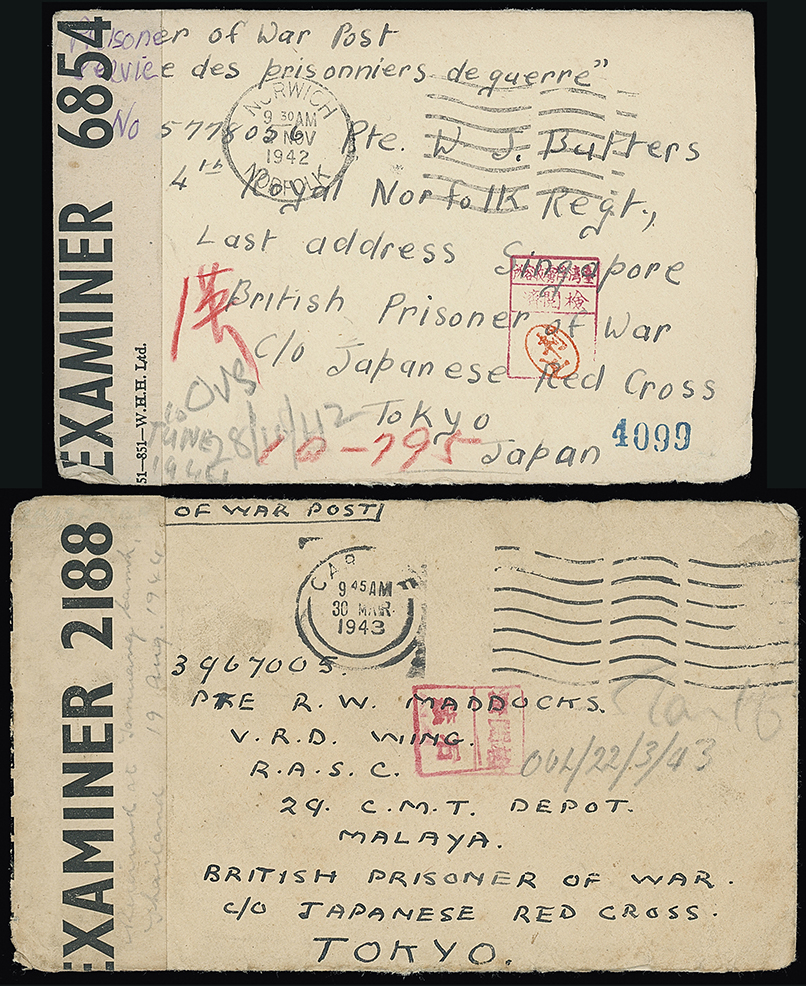 EXAMINER 6854
Prisoner of War Post
Service des prisonniers de guerre"
NORWICH
9 30 AM
NOV
1942
NORFOLK
No 5778056 Pte. W J. Butters
4th Royal Norfolk Regt.,
Last address Singapore
British Prisoner of War
C/o Japanese Red Cross
Tokyo
Japan
検閲済
OVS
28/10/42
JUNE
1944
10-795
4099
51—851—W.H.H. Ltd.
EXAMINER 2188
OF WAR POST
CAR
9 45 AM
30 MAR.
1943
3967005.
PTE R. W. MADDOCKS.
V.R.D. WING.
R.A.S.C.
29. C.M.T. DEPOT.
MALAYA.
BRITISH PRISONER OF WAR.
C/O JAPANESE RED CROSS.
TOKYO.
22/3/43
Received at Tamuang Camp,
Thailand 19 Aug. 1944